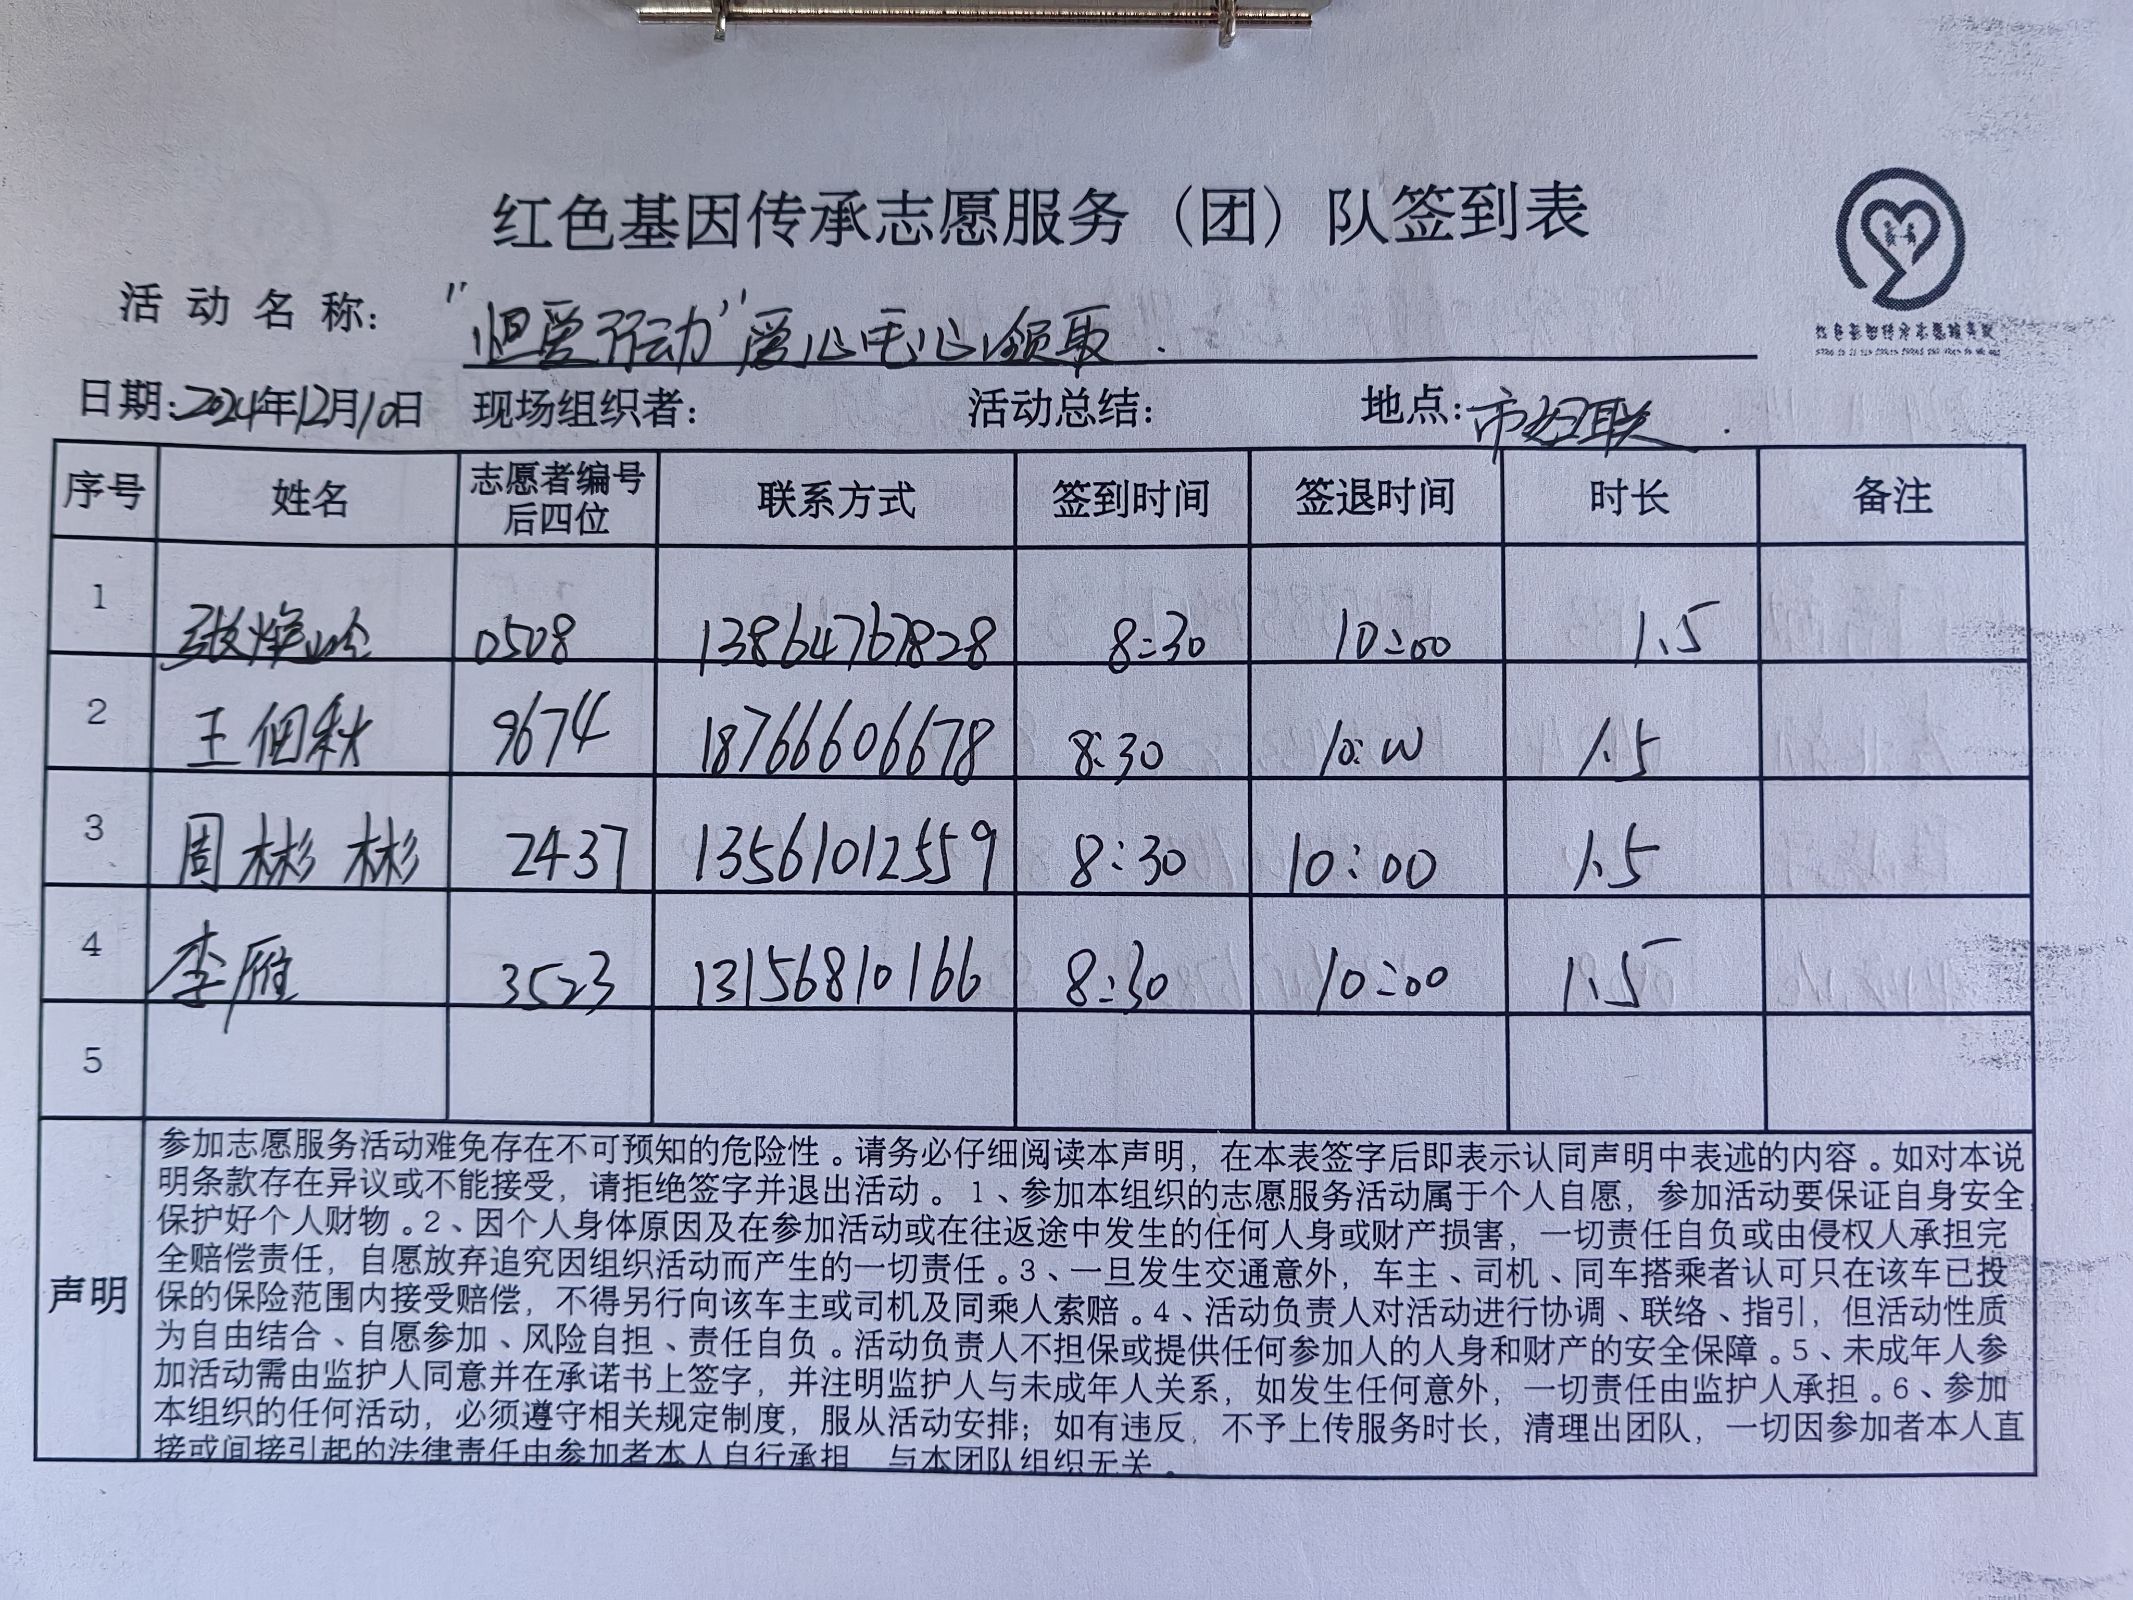 红色基因传承志愿服务（团）队签到表
活动名称："恒爱行动"爱心毛心领取.
日期:2024年12月10日 现场组织者: 活动总结: 地点:市妇联.
序号 姓名 志愿者编号后四位 联系方式 签到时间 签退时间 时长 备注
1 张 0508 13864767828 8:30 10:00 1.5
2 王佃秋 9674 18766606678 8:30 10:00 1.5
3 周彬彬 2437 13561012559 8:30 10:00 1.5
4 李雁 3523 13156810166 8:30 10:00 1.5
5
声明
参加志愿服务活动难免存在不可预知的危险性。请务必仔细阅读本声明，在本表签字后即表示认同声明中表述的内容。如对本说
明条款存在异议或不能接受，请拒绝签字并退出活动。1、参加本组织的志愿服务活动属于个人自愿，参加活动要保证自身安全，
保护好个人财物。2、因个人身体原因及在参加活动或在往返途中发生的任何人身或财产损害，一切责任自负或由侵权人承担完
全赔偿责任，自愿放弃追究因组织活动而产生的一切责任。3、一旦发生交通意外，车主、司机、同车搭乘者认可只在该车已投
保的保险范围内接受赔偿，不得另行向该车主或司机及同乘人索赔。4、活动负责人对活动进行协调、联络、指引，但活动性质
为自由结合、自愿参加、风险自担、责任自负。活动负责人不担保或提供任何参加人的人身和财产的安全保障。5、未成年人参
加活动需由监护人同意并在承诺书上签字，并注明监护人与未成年人关系，如发生任何意外，一切责任由监护人承担。6、参加
本组织的任何活动，必须遵守相关规定制度，服从活动安排；如有违反，不予上传服务时长，清理出团队，一切因参加者本人直
接或间接引起的法律责任由参加者本人自行承担，与本团队组织无关。